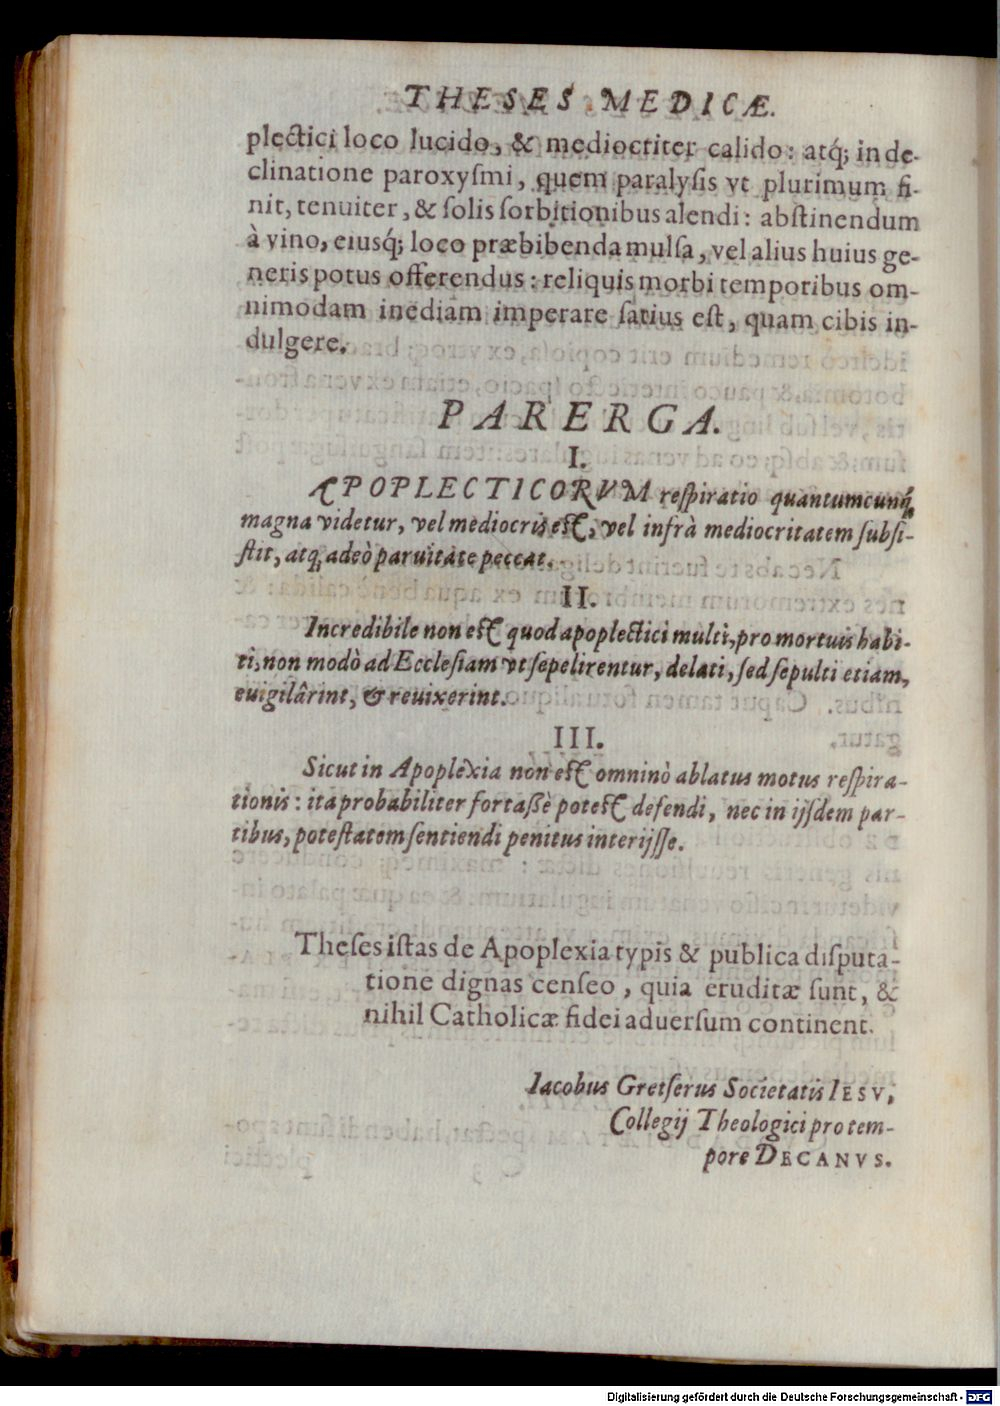 THESES MEDICÆ.
plectici loco lucido, & mediocriter calido: atq́; in de-
clinatione paroxyſmi, quem paralyſis vt plurimum fi-
nit, tenuiter, & ſolis ſorbitionibus alendi: abſtinendum
à vino, eiusq́; loco præbibenda mulſa, vel alius huius ge-
neris potus offerendus: reliquis morbi temporibus om-
nimodam inediam imperare ſatius eſt, quam cibis in-
dulgere.
PARERGA.
I.
APOPLECTICORVM reſpiratio quantumcunq́;
magna videtur, vel mediocris eſt, vel infrà mediocritatem ſubſi-
ſtit, atq; adeò paruitate peccat.
II.
Incredibile non eſt quod apoplectici multi, pro mortuis habi-
ti, non modò ad Eccleſiam vt ſepelirentur, delati, ſed ſepulti etiam,
euigilârint, & reuixerint.
III.
Sicut in Apoplexia non eſt omninò ablatus motus reſpira-
tionis: ita probabiliter fortaßè poteſt defendi, nec in ijſdem par-
tibus, poteſtatem ſentiendi penitus interijſſe.
Theſes iſtas de Apoplexia typis & publica diſputa-
tione dignas cenſeo, quia eruditæ ſunt, &
nihil Catholicæ fidei aduerſum continent.
Iacobus Gretſerus Societatis IESV,
Collegij Theologici pro tem-
pore DECANVS.
Digitalisierung gefördert durch die Deutsche Forschungsgemeinschaft - DFG